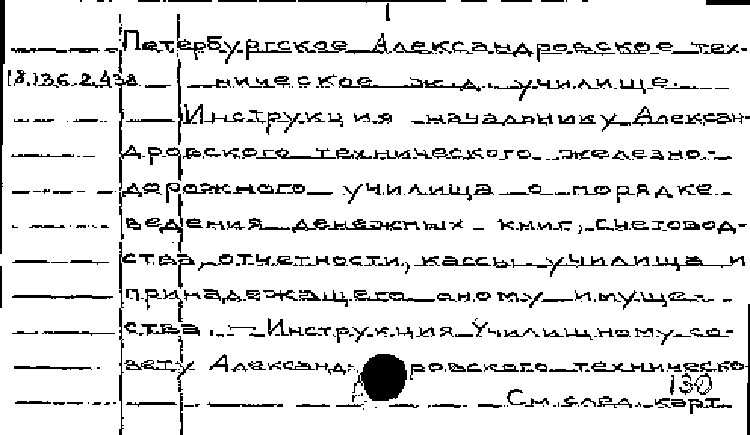 Петербургское Александровское тех-
18.136.2.438 ническое ж.д. училище.
Инструкция начальнику Алексан-
дровского технического железно-
дорожного училища о порядке
ведения денежных книг, счетовод-
ства, отчетности, кассы училища и
принадежащего оному имуще-
ства. – Инструкция Училищному со-
вету Александровского техническо
130
См. след. карт.